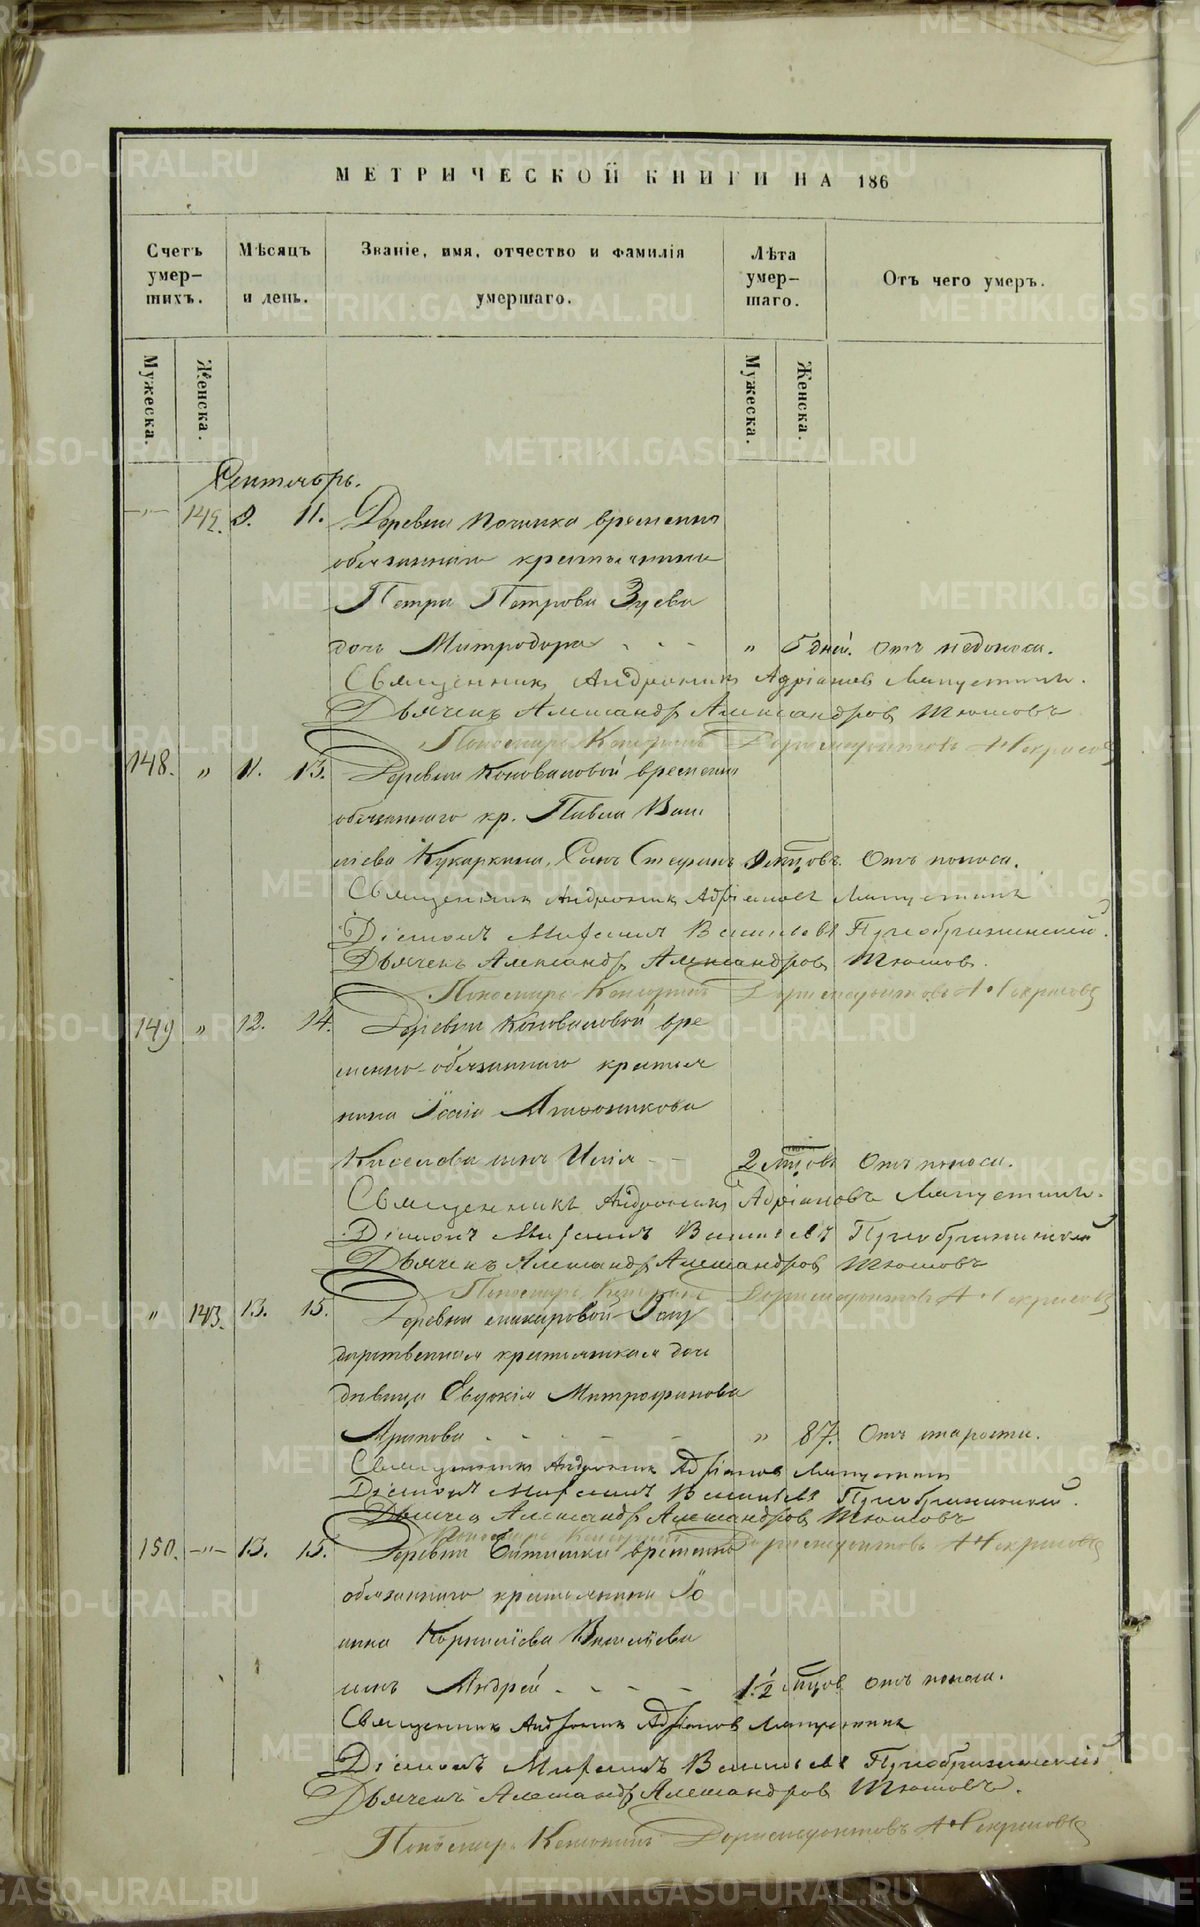 МЕТРИЧЕСКОЙ КНИГИ НА 186
Счетъ умер-
шихъ.
Мѣсяцъ
и день.
Званіе, имя, отчество и фамилія
умершаго.
Лѣта
умер-
шаго.
Отъ чего умеръ.
Мужеска.
Женска.
Мужеска.
Женска.
Сентябрь.
142. 9. 11. Деревни Починка временно
обязаннаго крестьянина
Петра Петрова Зуева
дочь Митродора " 5 дней. Отъ недоноса.
Священникъ Андроникъ Адріановъ
Дьячекъ Александръ Александровъ Тюшовъ
Пономарь Доримедонтовъ Некрасовъ
148. " 11. 13. Деревни Коноваловой временно
обязаннаго кр. Павла Васи
лiева Кукаркина, Сынъ Стефанъ 9 мцовъ. Отъ поноса.
Священникъ Андроникъ Адріановъ
Діаконъ Василіевъ Преображенскій.
Дьячекъ Александръ Александровъ Тюшовъ.
Пономарь Доримедонтовъ Некрасовъ
149 " 12. 14. Деревни Коноваловой вре
менно-обязаннаго крестья
нина
Киселева сынъ Илія 2 мцовъ Отъ поноса.
Священникъ Андроникъ Адріановъ
Діаконъ Василіевъ Преображенскій
Дьячекъ Александръ Александровъ Тюшовъ
Пономарь Доримедонтовъ Некрасовъ
" 143. 13. 15. Деревни Госу
дарственная крестьянская дочь
дѣвица Евдокія Митрофанова
" 87. Отъ старости.
Священникъ Андроникъ Адріановъ
Діаконъ Василіевъ Преображенскій.
Дьячекъ Александръ Александровъ Тюшовъ
Пономарь Доримедонтовъ Некрасовъ
150. -"- 13. 15. Деревни временно
обязаннаго крестьянина Іо
анна Корниліева Василіева
сынъ Андрей 1. 1/2 мцов Отъ поноса.
Священникъ Андроникъ Адріановъ
Діаконъ Василіевъ Преображенскій
Дьячекъ Александръ Александровъ Тюшовъ.
Пономарь Доримедонтовъ Некрасовъ
METRIKI.GASO-URAL.RU